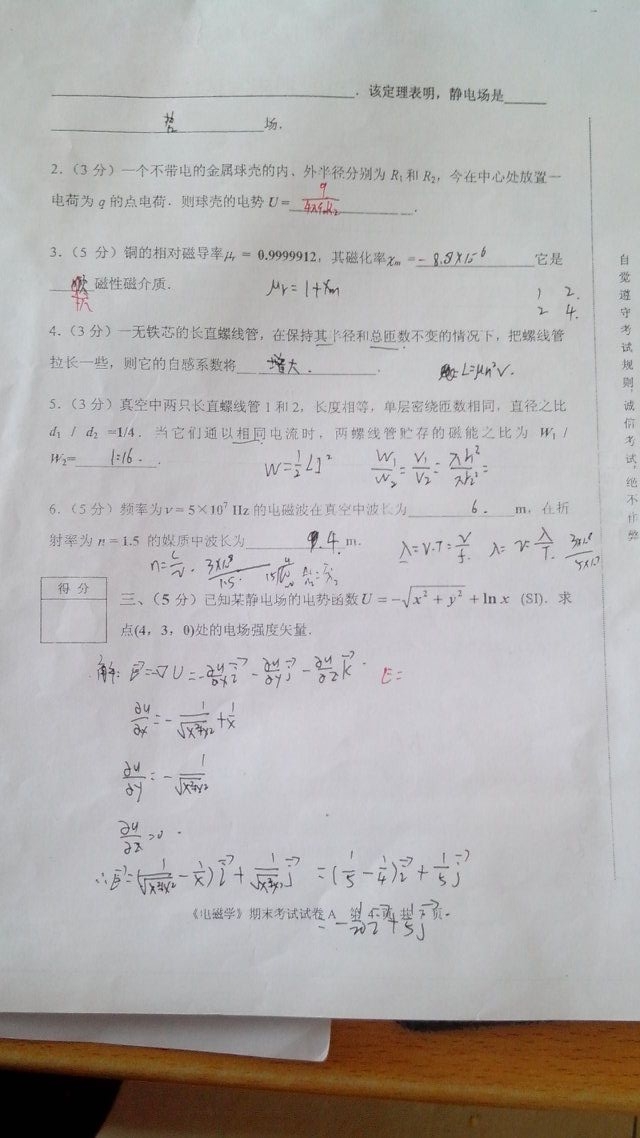 ____________________. 该定理表明，静电场是______
____________势____________场.
2.（3 分）一个不带电的金属球壳的内、外半径分别为 R₁ 和 R₂, 今在中心处放置一
电荷为 q 的点电荷. 则球壳的电势 U = q/4πε₀R₂ .
3.（5 分）铜的相对磁导率 μr = 0.9999912, 其磁化率 χm = -8.8×10⁶ 它是
抗 磁性磁介质.
μr = 1+χm
1 2.
2 4.
4.（3 分）一无铁芯的长直螺线管，在保持其半径和总匝数不变的情况下，把螺线管
拉长一些，则它的自感系数将 增大 .
L=μn²V.
5.（3 分）真空中两只长直螺线管 1 和 2，长度相等，单层密绕匝数相同，直径之比
d₁ / d₂ =1/4. 当它们通以相同电流时，两螺线管贮存的磁能之比为 W₁ /
W₂= 1:16 .
W=½LI² W₁/W₂ = V₁/V₂ =
6.（5 分）频率为 ν = 5×10⁷ Hz 的电磁波在真空中波长为 6. m，在折
射率为 n = 1.5 的媒质中波长为 4. m.
n=c/v. 3×10⁸/1.5 λ=v·T=v/f.
得 分
三、（5 分）已知某静电场的电势函数 U = -√(x² + y²) + ln x (SI). 求
点(4，3，0)处的电场强度矢量.
解: E=-▽U=-∂u/∂x i - ∂u/∂y j - ∂u/∂z k . E=
∂u/∂x = - 1/√(x²+y²) + 1/x
∂u/∂y = - 1/√(x²+y²)
∂u/∂z =0 .
∴E=(1/√(x²+y²) - 1/x) i + 1/√(x²+y²) j = (1/5 - 1/4) i + 1/5 j
= -1/20 i + 1/5 j
《电磁学》期末考试试卷 A
自觉遵守考试规则，诚信考试，绝不作弊